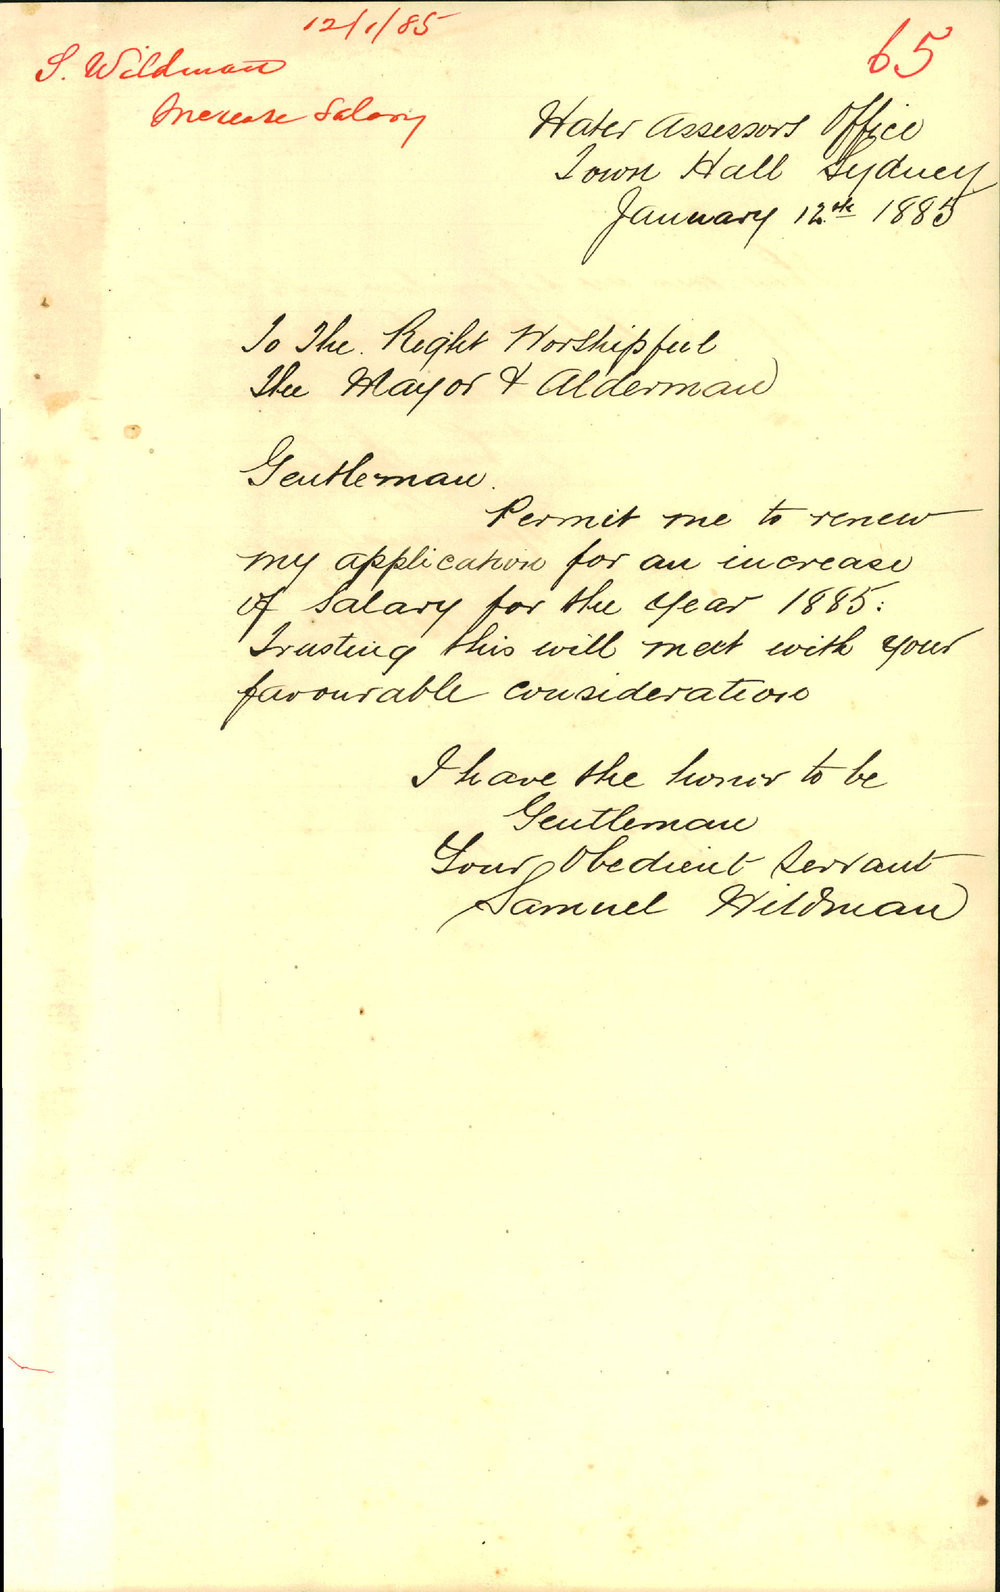 12/1/85
S. Wildman
Increase Salary
65
Water Assessors Office
Town Hall Sydney
January 12th 1885
To The. Right Worshipful
The Mayor & Alderman
Gentleman.
Permit me to renew
my application for an increase
of Salary for the year 1885:
Trusting this will meet with your
favourable consideration
I have the honor to be
Gentleman
Your Obedient Servant
Samuel Wildman